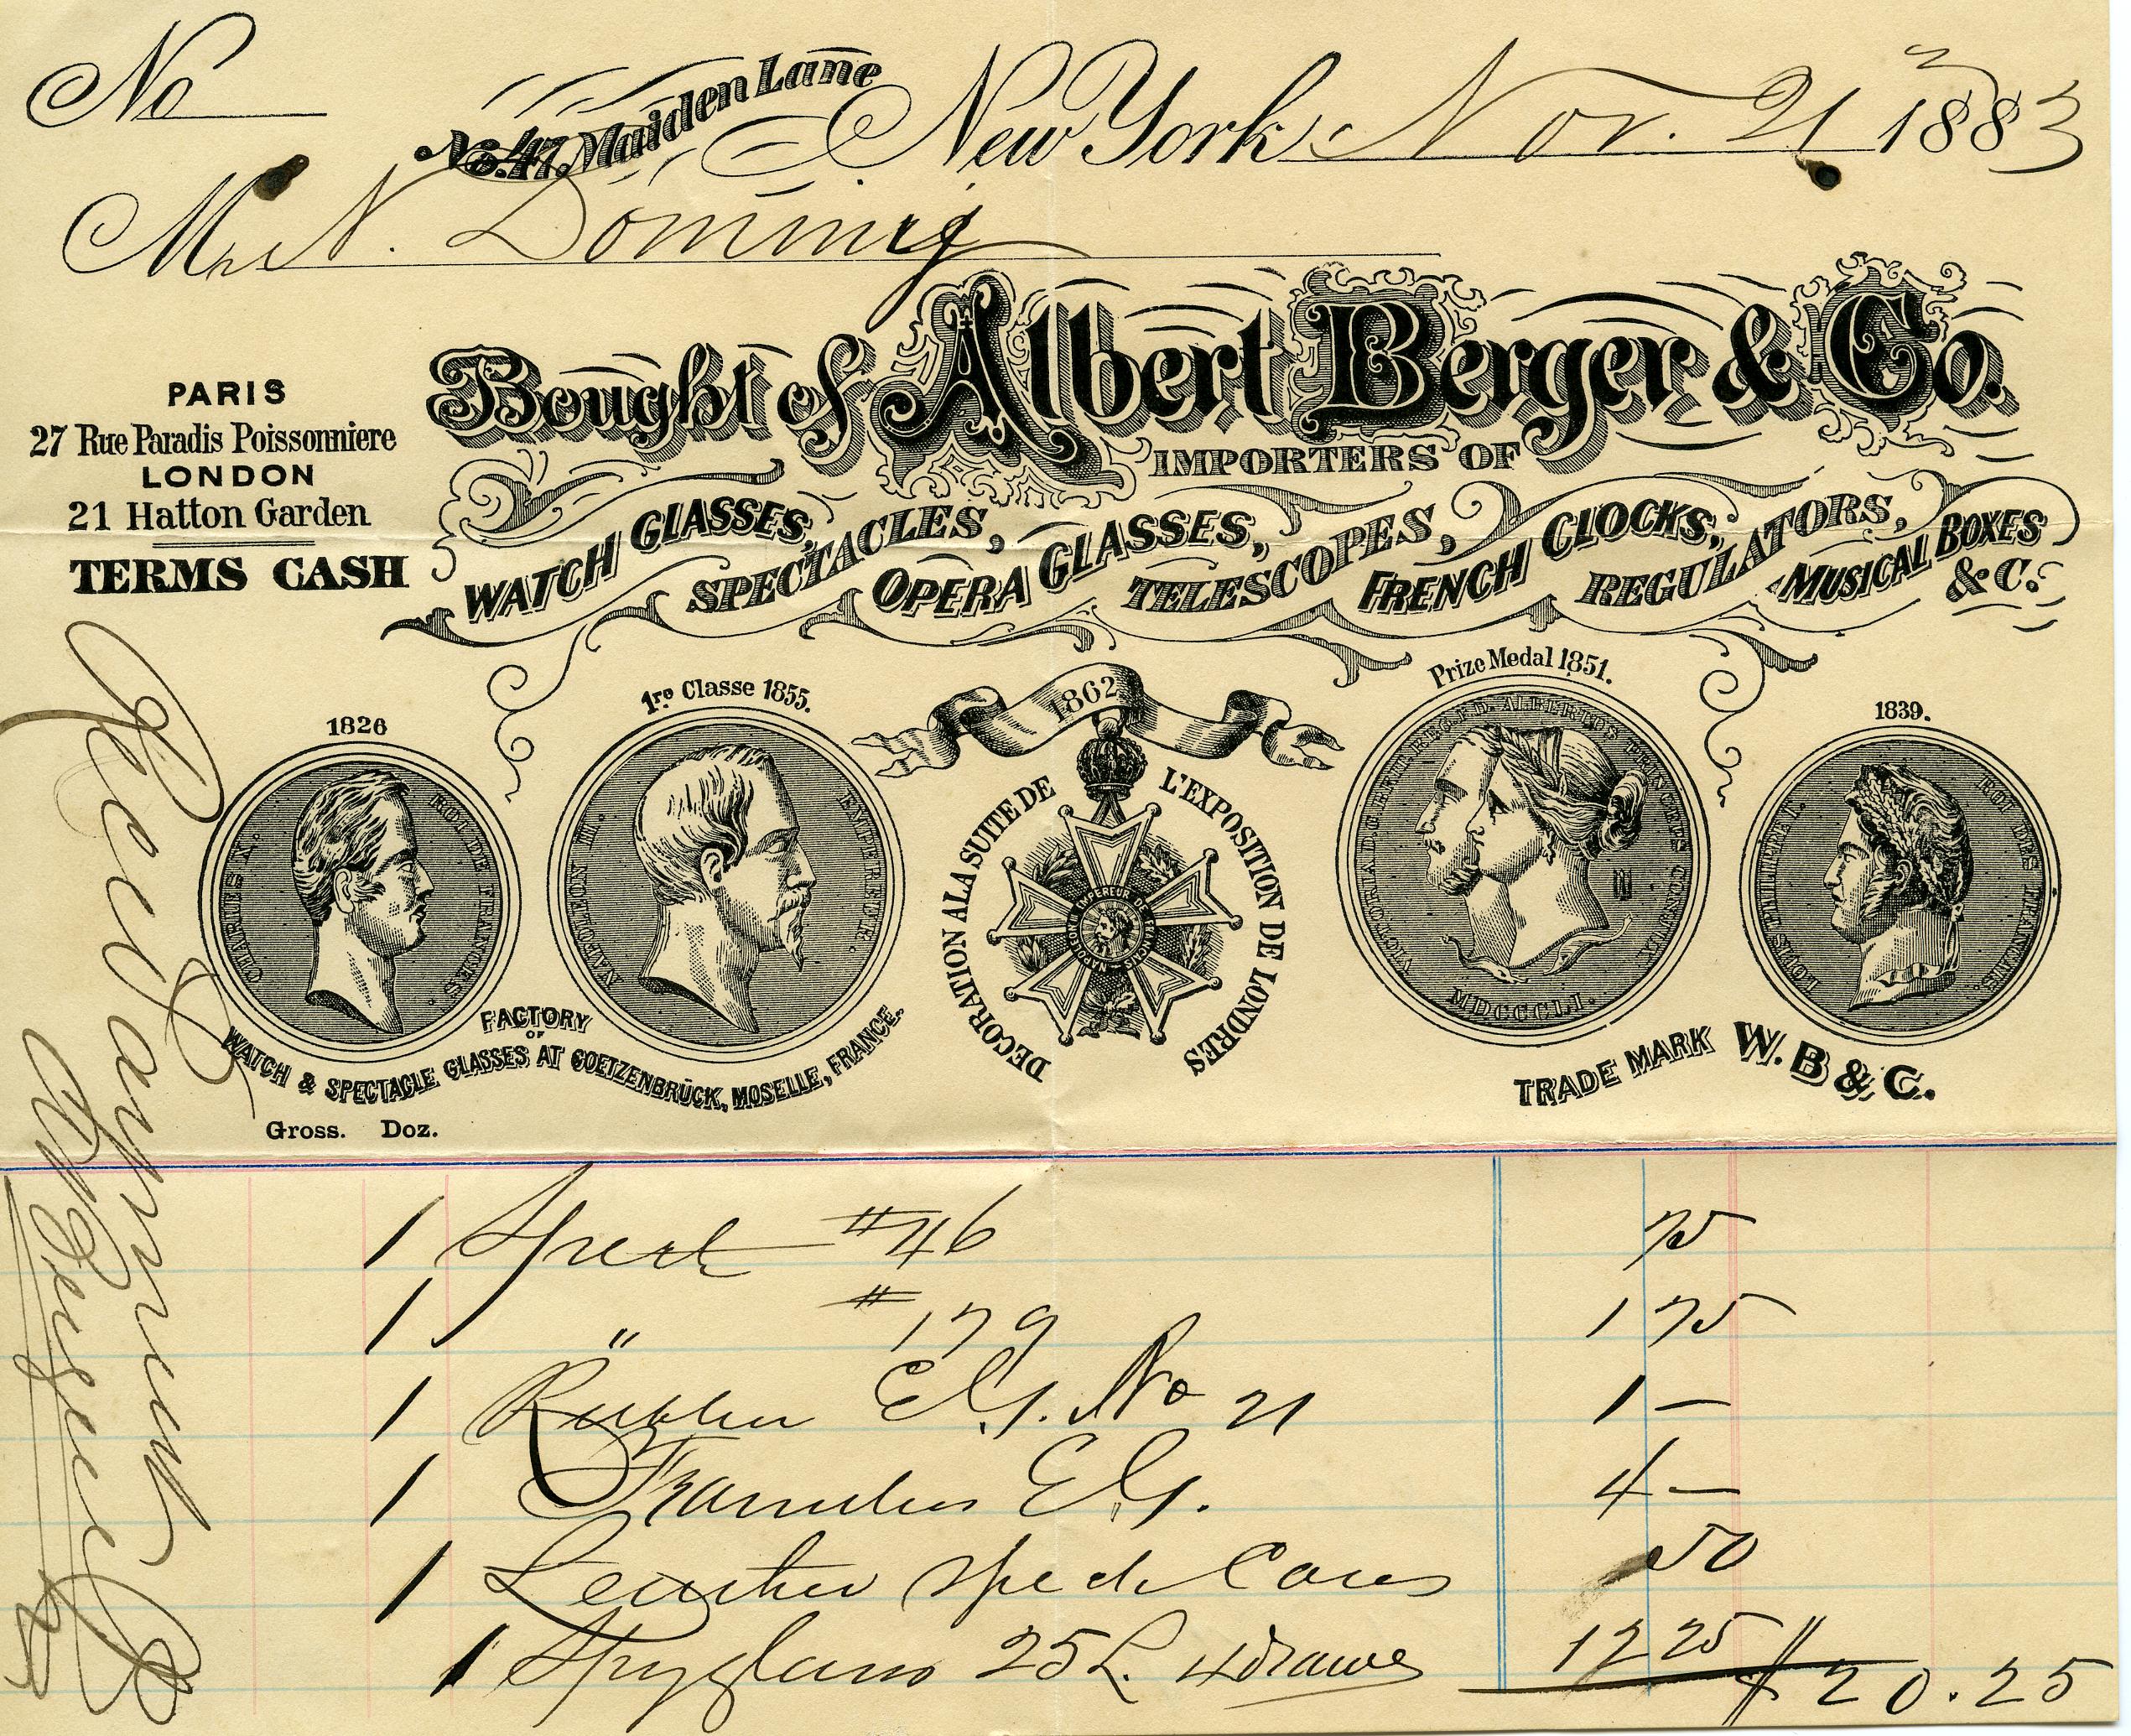 No
No. 47, Maiden Lane
New York, Nov. 21 1883
Mr N.
Bought of Albert Berger & Co.
IMPORTERS OF
WATCH GLASSES, SPECTACLES, OPERA GLASSES, TELESCOPES, FRENCH CLOCKS, REGULATORS, MUSICAL BOXES & C.
PARIS
27 Rue Paradis Poissonniere
LONDON
21 Hatton Garden
TERMS CASH
1826
CHARLES X. ROI DE FRANCE.
1re Classe 1855.
NAPOLEON III. EMPEREUR.
1862
DECORATION A LA SUITE DE L'EXPOSITION DE LONDRES
NAPOLEON EMPEREUR DES FRANCAIS
Prize Medal 1851.
VICTORIA D.G. BRIT. REG. F.D. ALBERTUS PRINCEPS CONJUX
MDCCCLI.
1839.
LOUIS PHILIPPE I. ROI DES FRANCAIS.
FACTORY
OF
WATCH & SPECTACLE GLASSES AT GOETZENBRÜCK, MOSELLE, FRANCE.
TRADE MARK W. B & C.
Gross. Doz.
1 Spect #46 75
1 " #179 1 75
1 Rubber E.G. No 21 1 —
1 E.G. 4 —
1 Leather Spect Cases 50
1 Spyglass 25 L. 4 draws 12 25
$20.25
Rec'd Payment